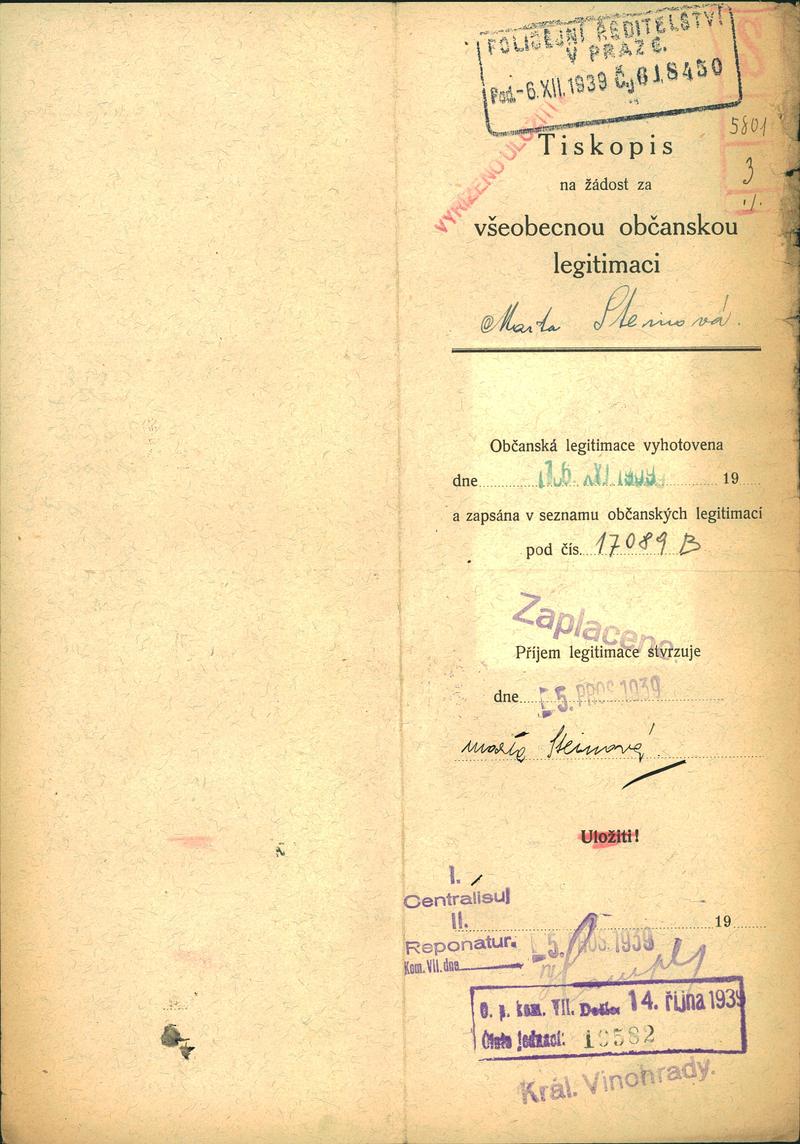 POLICEJNÍ ŘEDITELSTVÍ
V PRAZE.
Pod. -6.XII.1939 Čj 618450
5801
3
VYŘÍZENO ULOŽITI
Tiskopis
na žádost za
všeobecnou občanskou
legitimaci
Marta Steinová.
Občanská legitimace vyhotovena
dne 16. XI 1939 19
a zapsána v seznamu občanských legitimací
pod čís. 17089 B
Zaplaceno
Příjem legitimace stvrzuje
dne 5. PROS 1939
Marta Steinová
Uložiti!
I.
Centralisuj
II.
19
Reponatur. 5. PROS. 1939
Kom. VII. dne
O. p. kom. VII. Došlo: 14. října 1939
Číslo jednací: 19582
Král. Vinohrady.